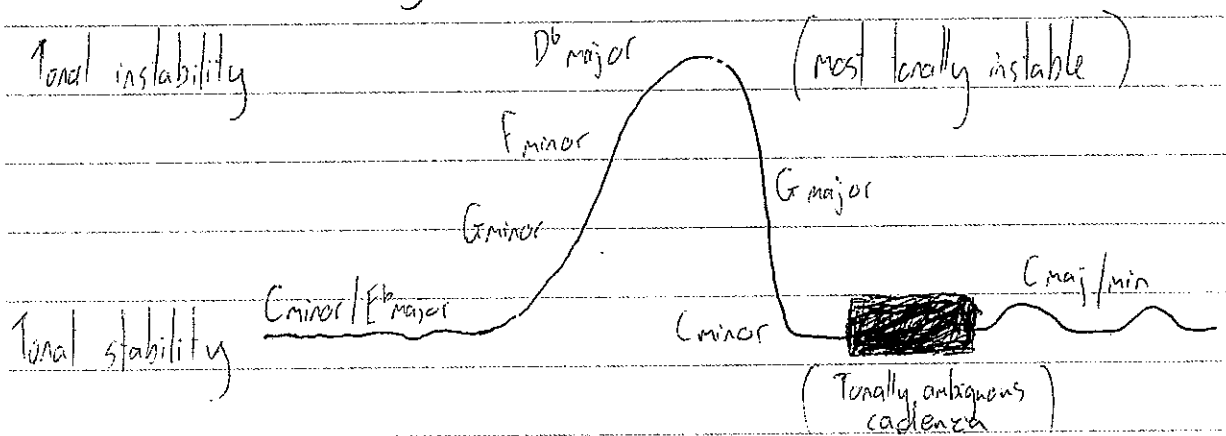 Tonal instability
D♭ major
(most tonally instable)
F minor
G major
G minor
C minor/E♭ major
C maj/min
Tonal stability
C minor
(Tonally ambiguous
cadenza)